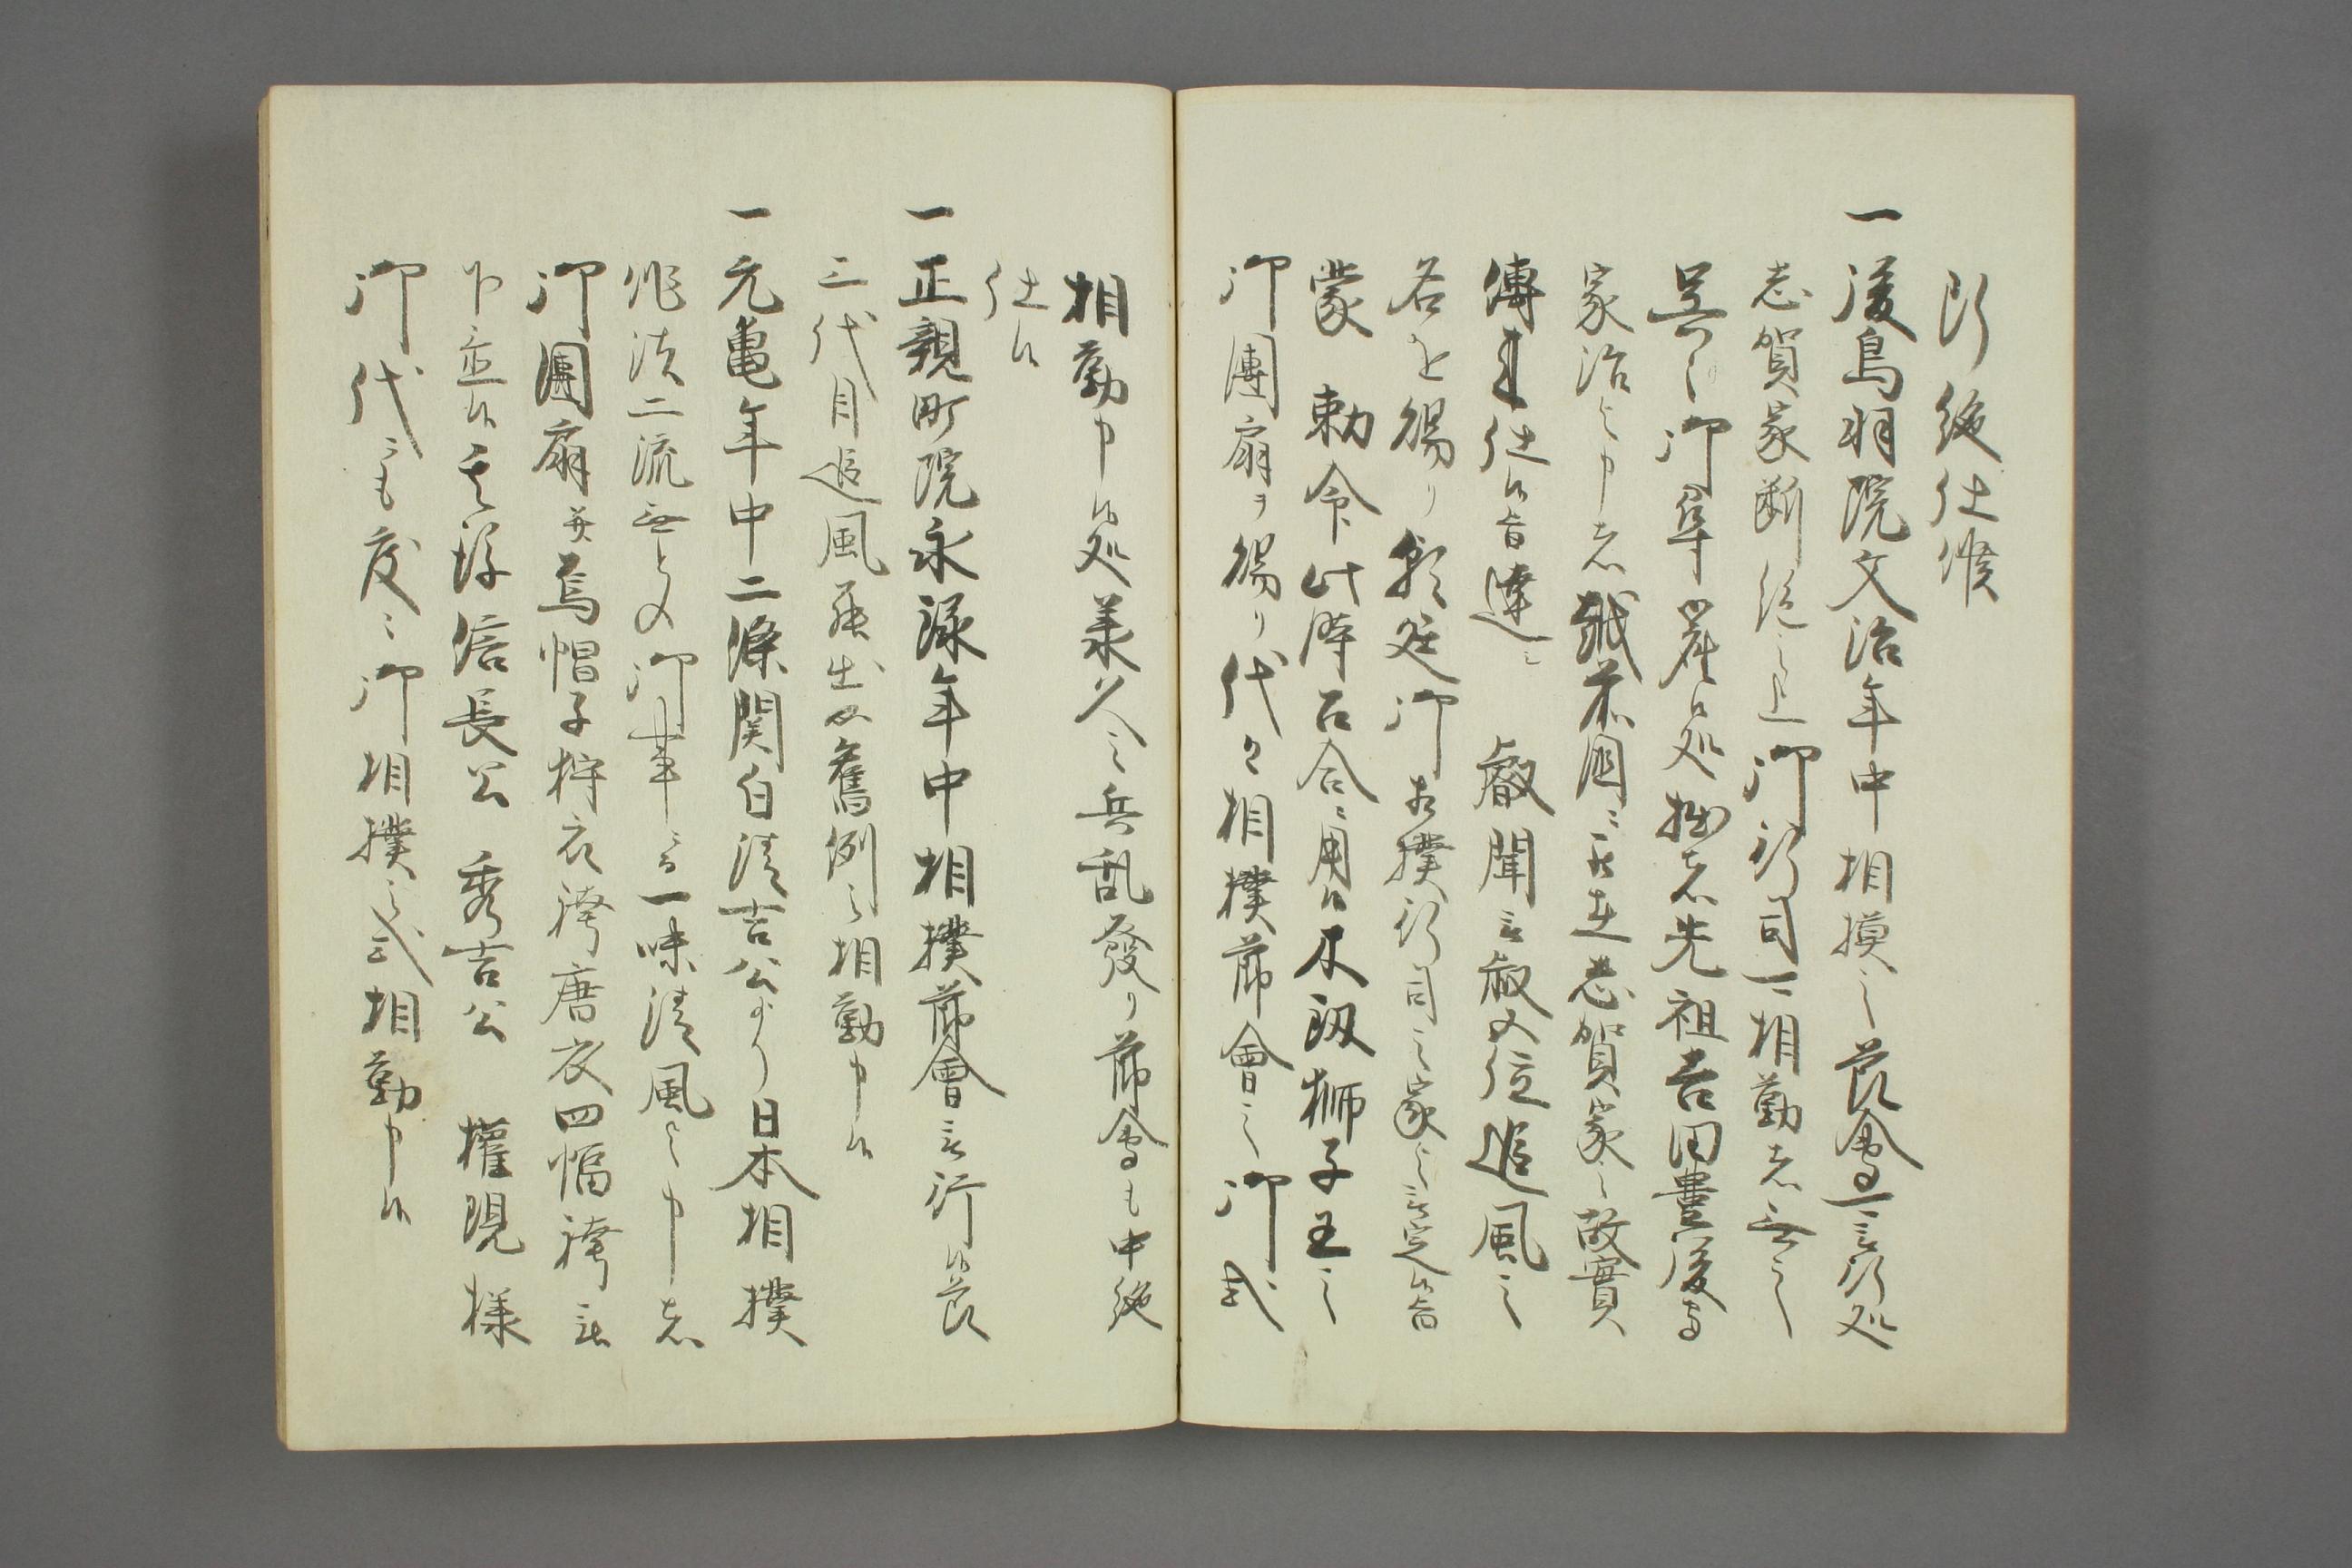 断絶仕候
一後鳥羽院文治年中相撲之節會可被行処
志賀家断絶之上御行司可相勤者無之
普く御尋座候処拙者先祖吉田豊後守
家治と申者越前国ニ罷在志賀家之故實
傳来仕候旨達ニ　叡聞被叙五位追風之
名を賜り朝廷御相撲行司之家与被定候旨
蒙　勅命此時召合ニ用候木釼獅子王之
御團扇ヲ賜り代々相撲節會之御式
相勤申候処兼久之兵乱發り節會も中絶
仕候
一正親町院永禄年中相撲節會被行候節
三代目追風罷出如舊例之相勤申候
一元亀年中二條関白清吉公より日本相撲
作法二流無との御事ニ而一味清風と申
御團扇并烏帽子狩衣袴唐衣四幅袴被
下置候其後信長公　秀吉公　權現様
御代ニも度々御相撲之式相勤申候